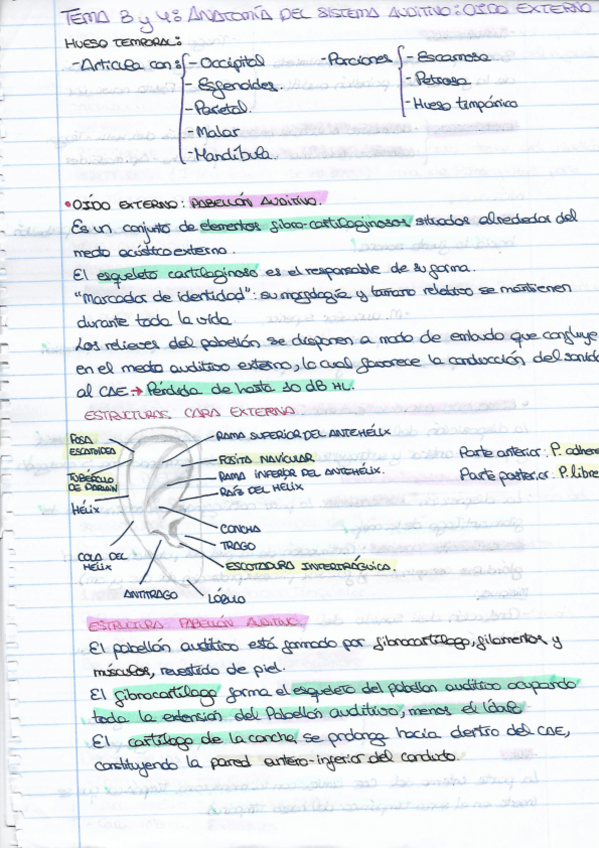 TEMA 3 y 4: ANATOMÍA DEL SISTEMA AUDITIVO: OÍDO EXTERNO
HUESO TEMPORAL:
- Articula con: - Occipital - Porciones - Escamosa
- Esfenoides. - Petrosa
- Parietal. - Hueso timpánico
- Malar
- Mandíbula.
• OÍDO EXTERNO: PABELLÓN AUDITIVO.
Es un conjunto de elementos fibro-cartilaginosos situados alrededor del
meato acústico externo.
El esqueleto cartilaginoso es el responsable de su forma.
"Marcador de identidad": su morfología y tamaño relativo se mantienen
durante toda la vida.
Los relieves del pabellón se disponen a modo de embudo que confluye
en el meato auditivo externo, lo cual favorece la conducción del sonido
al CAE → Pérdida de hasta 10 dB HL.
ESTRUCTURAS CARA EXTERNA
FOSA
ESCAFOIDEA
TUBÉRCULO
DE DARWIN
HÉLIX
COLA DEL
HÉLIX
ANTITRAGO
LÓBULO
RAMA SUPERIOR DEL ANTEHÉLIX
FOSITA NAVICULAR.
RAMA INFERIOR DEL ANTEHÉLIX.
RAÍS DEL HÉLIX
CONCHA
TRAGO
ESCOTADURA INTERTRÁGUICA.
Parte anterior: P. adhere
Parte posterior: P. libre
ESTRUCTURA PABELLÓN AUDITIVO
El pabellón auditivo está formado por fibrocartílago, filamentos y
músculos, revestido de piel.
El fibrocartílago forma el esqueleto del pabellón auditivo ocupando
toda la extensión del Pabellón auditivo, menos el lóbulo
El cartílago de la concha, se prolonga hacia dentro del CAE,
constituyendo la pared antero-inferior del conducto.